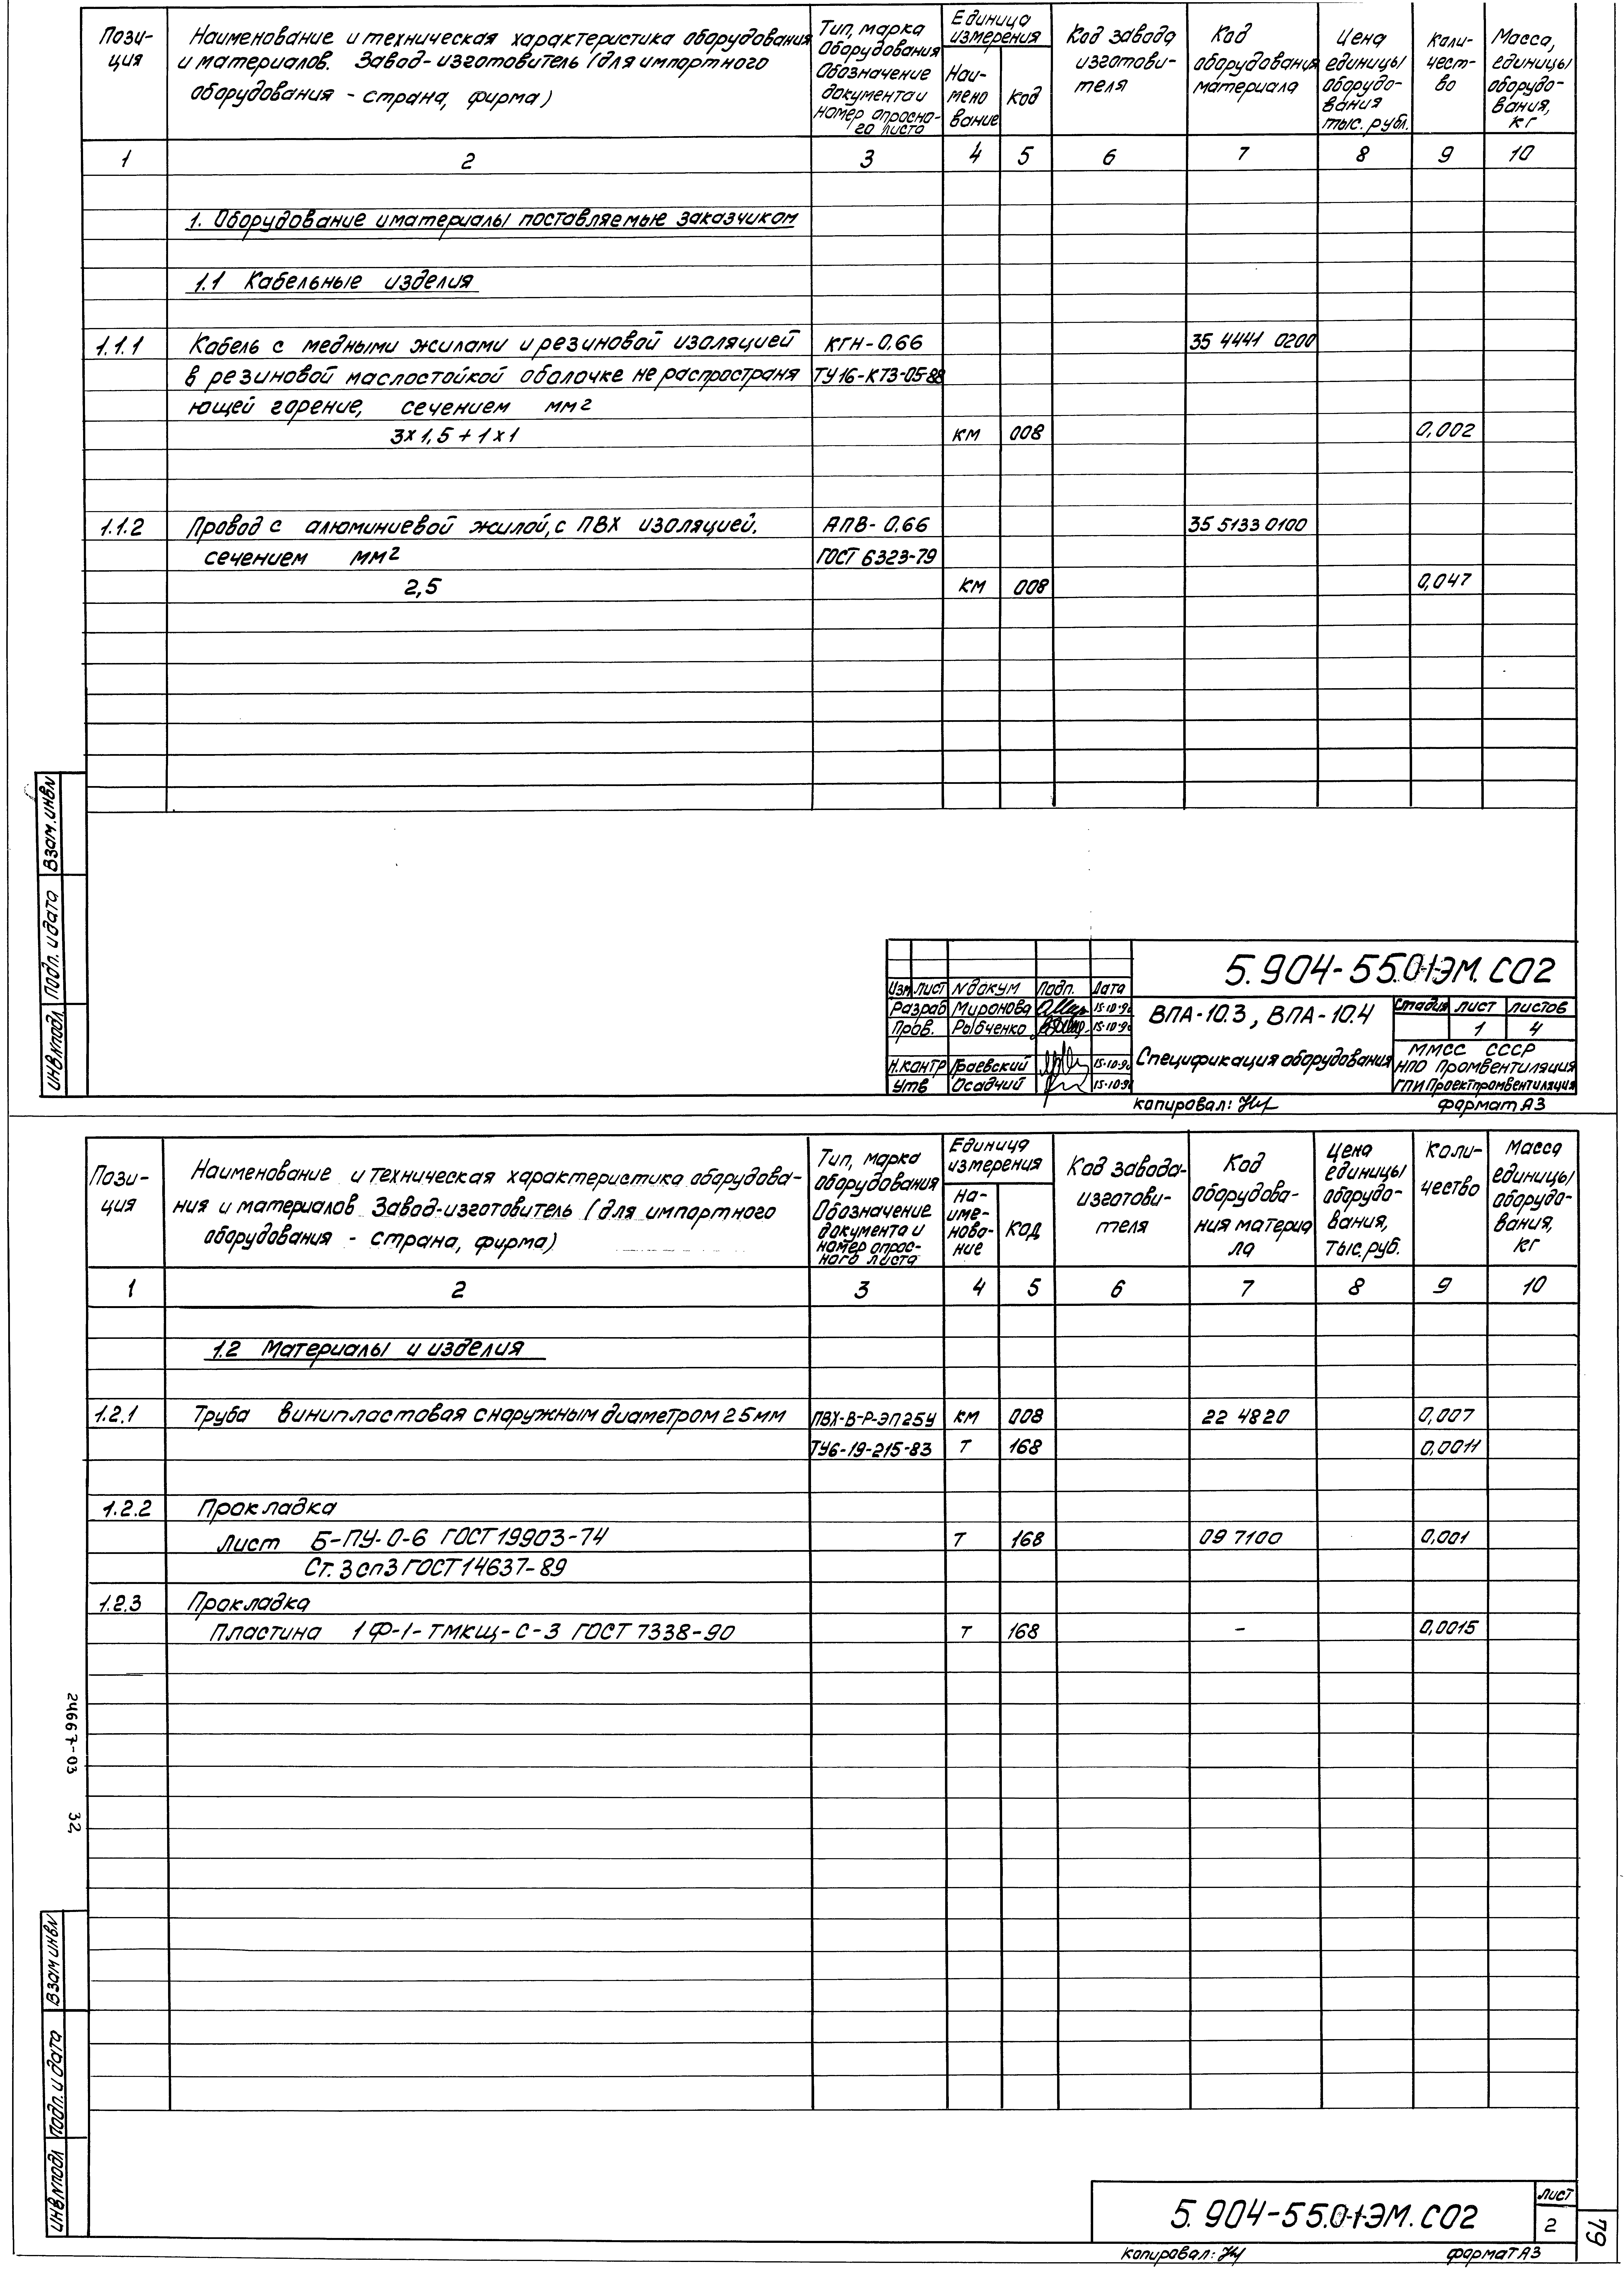 Пози-
ция
Наименование и техническая характеристика оборудования
и материалов. Завод-изготовитель (для импортного
оборудования - страна, фирма)
Тип, марка
Оборудования
Обозначение
документа и
номер опросно-
го листа
Единица
измерения
Наи-
мено
вание
Код
Код завода
изготови-
теля
Код
оборудования
материала
Цена
единицы
оборудо-
вания
тыс. рубл.
Коли-
чест-
во
Масса,
единицы
оборудо-
вания,
кг
1 2 3 4 5 6 7 8 9 10
1. Оборудование и материалы поставляемые заказчиком
1.1 Кабельные изделия
1.1.1 Кабель с медными жилами и резиновой изоляцией КГН-0.66 35 4441 0200
в резиновой маслостойкой оболочке не распространя ТУ16-К73-05-88
ющей горение, сечением мм2
3х1,5 + 1х1 км 008 0,002
1.1.2 Провод с алюминиевой жилой, с ПВХ изоляцией. АПВ-0.66 35 5133 0100
сечением мм2 ГОСТ 6323-79
2,5 км 008 0,047
Взам.инвN
Подп. и дата
ИнвNподл
5.904-55.0-1ЭМ.СО2
Изм Лист Nдокум Подп. Дата
Разраб Миронова 15.10.90
Пров. Рыбченко 15.10.90
Н.контр Баевский 15.10.90
Утв Осадчий 15.10.90
ВПА-10.3, ВПА-10.4
Спецификация оборудования
Стадия Лист Листов
1 4
ММСС СССР
НПО Промвентиляция
ГПИ Проектпромвентиляция
Копировал:
Формат А3
Пози-
ция
Наименование и техническая характеристика оборудова-
ния и материалов Завод-изготовитель (для импортного
оборудования - страна, фирма)
Тип, марка
оборудования
Обозначение
документа и
номер опрос-
ного листа
Единица
измерения
На-
име-
нова-
ние
Код
Код завода-
изготови-
теля
Код
оборудова-
ния материа
ла
Цена
единицы
оборудо-
вания,
тыс.руб.
Коли-
чество
Масса
единицы
оборудо-
вания,
кг
1 2 3 4 5 6 7 8 9 10
1.2 Материалы и изделия
1.2.1 Труба винипластовая с наружным диаметром 25мм ПВХ-В-Р-ЭП25У км 008 22 4820 0,007
ТУ6-19-215-83 т 168 0,0011
1.2.2 Прокладка
Лист Б-ПУ-О-6 ГОСТ19903-74 т 168 09 7100 0,001
Ст.3сп3 ГОСТ14637-89
1.2.3 Прокладка
Пластина 1Ф-I-ТМКЩ-С-3 ГОСТ 7338-90 т 168 - 0,0015
24667-03 32
Взам инвN
Подп. и дата
ИнвNподл
5.904-55.0-1ЭМ.СО2
Лист
2
79
Копировал:
Формат А3